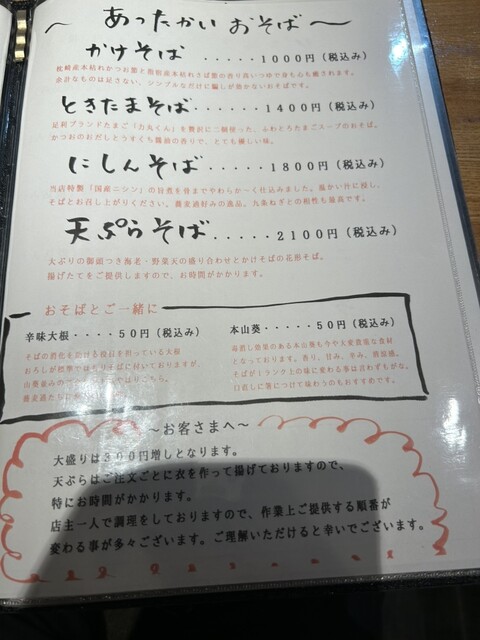 ～あったかいおそば～
かけそば ・・・・・1000円(税込み)
枕崎産本枯れかつお節と熊野産本枯れさば節の香り高いつゆで身も心も癒されます。
余計なものは足さない、シンプルなだけに騙しが効かないおそばです。
ときたまそば・・・・・・1400円(税込み)
足利ブランドたまご「力丸くん」を贅沢に二個使った、ふわとろたまごスープのおそば。
かつおのおだしとうすくち醤油の香りで、とても優しい味。
にしんそば・・・・・・・1800円(税込み)
当店特製「国産ニシン」の旨煮を骨までやわらか～く仕込みました。温かい汁に浸し、
そばとお召し上がりください。蕎麦通好みの逸品、九条ねぎとの相性も最高です。
天ぷらそば・・・・・2100円(税込み)
大ぶりの御頭つき海老・野菜天の盛り合わせとかけそばの花形そば。
揚げたてをご提供しますので、お時間がかかります。
おそばとご一緒に
辛味大根・・・・50円(税込み)
そばの消化を助ける役目を担っている大根
おろしが把準ではもりそばに付いておりますが、
本山葵・・・・・50円(税込み)
毒消し効果のある本山葵も今や大変貴重な食材
となっております。香り、甘み、辛み、清涼感。
そばが1ランク上の味に変わる事は言わずもがな、
口直しに箸につけて味わうのもおすすめです。
～お客さまへ～
大盛りは300円増しとなります。
天ぷらはご注文ごとに衣を作って揚げておりますので、
特にお時間がかかります。
店主一人で調理をしておりますので、作業上ご提供する順番が
変わる事が多々ございます。ご理解いただけると幸いでございます。